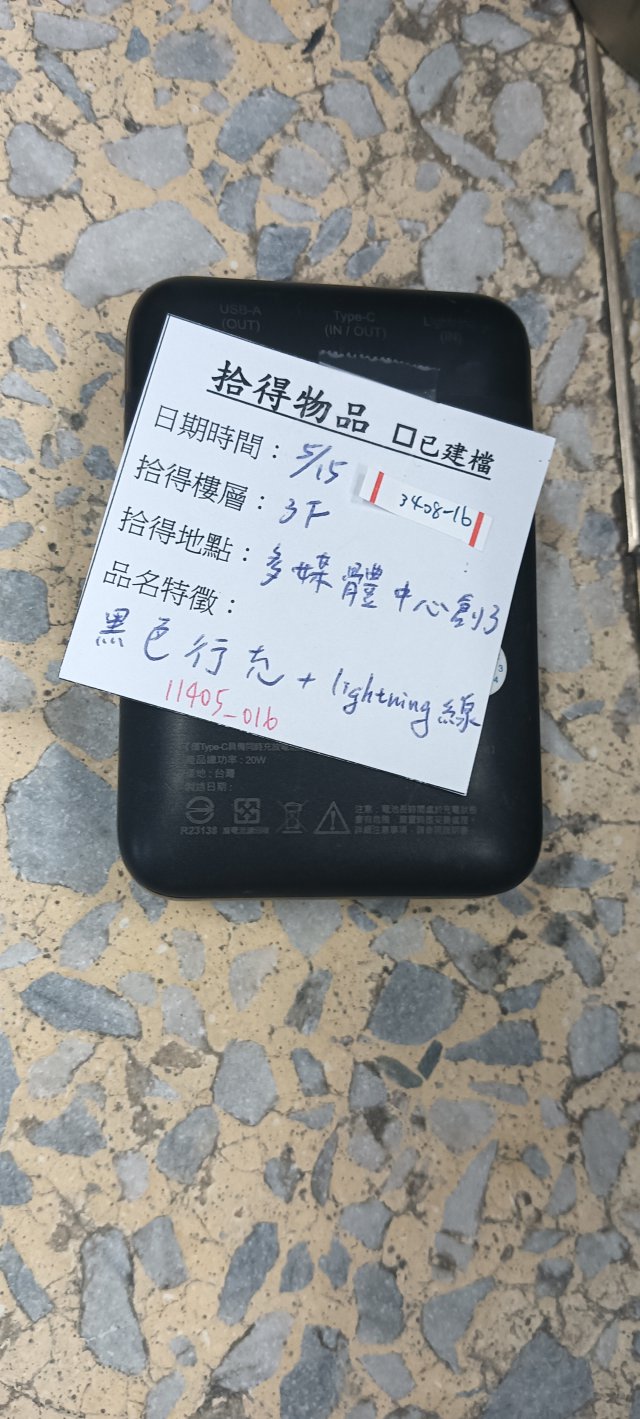 USB-A
(OUT)
Type-C
(IN / OUT)
(IN)
拾得物品 □已建檔
日期時間：5/15
3408-16
拾得樓層：3F
拾得地點：多媒體中心創3
品名特徵：
黑色行充 + lightning 線
11405_016
產品總功率：20W
產地：台灣
製造日期：
R23138